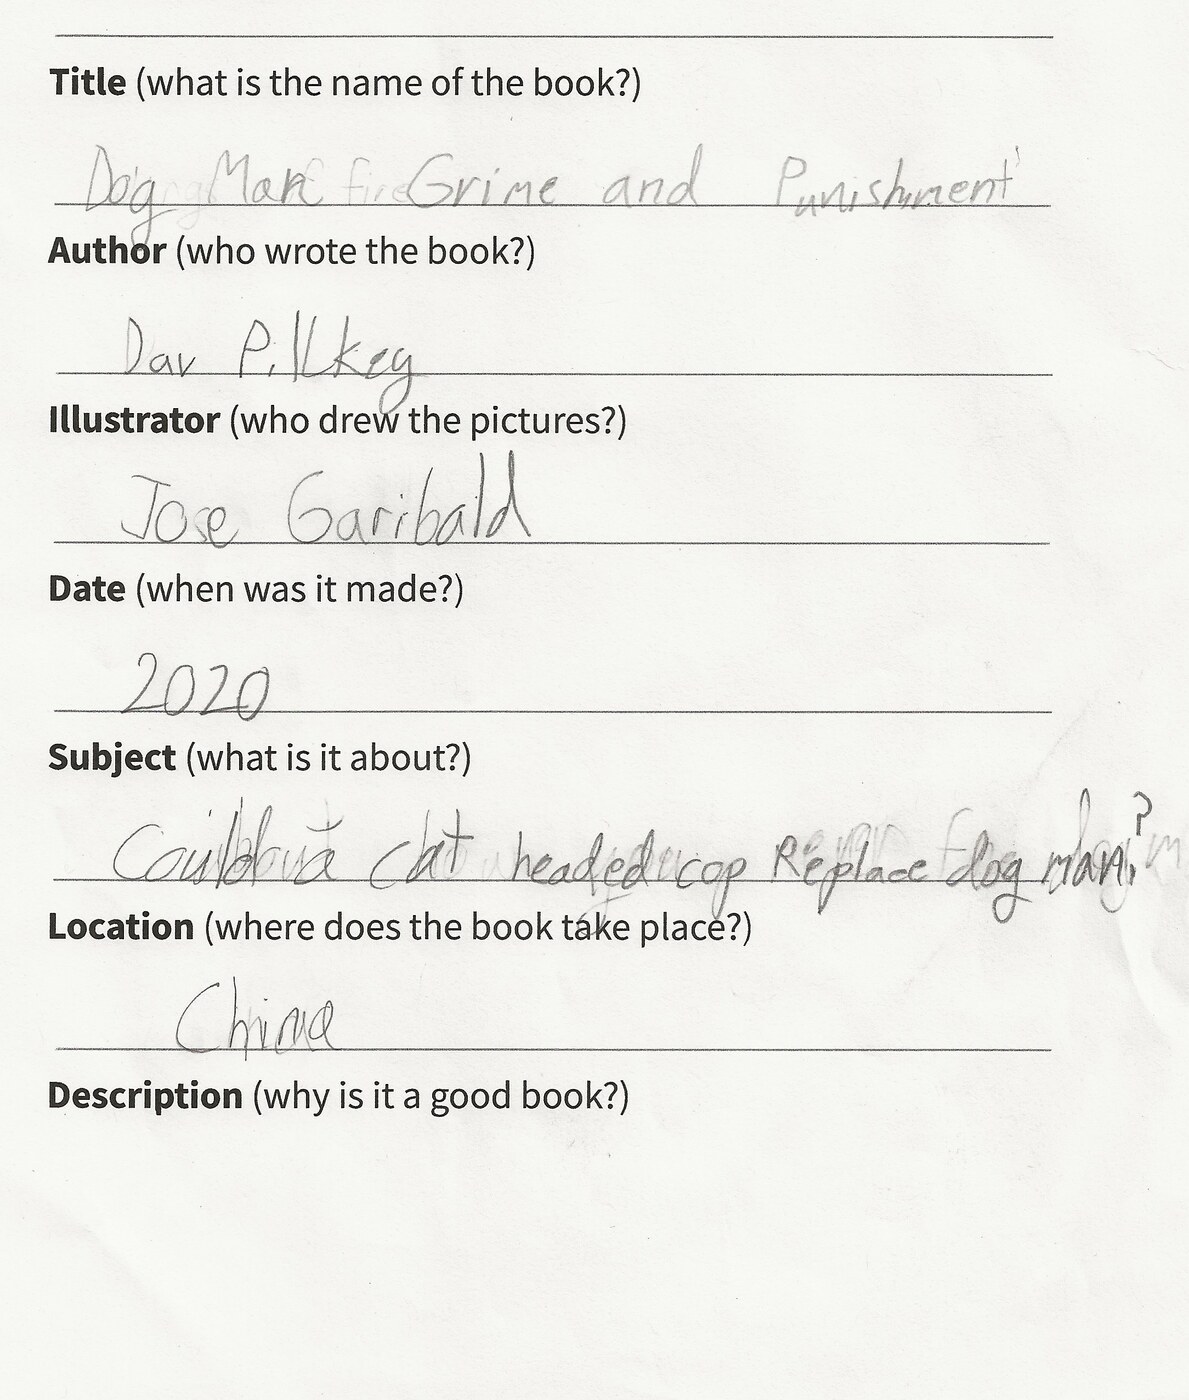 Title (what is the name of the book?)
Dog Man Grime and Punishment
Author (who wrote the book?)
Dav Pillkey
Illustrator (who drew the pictures?)
Jose Garibald
Date (when was it made?)
2020
Subject (what is it about?)
Could a cat headed cop Replace dog man?
Location (where does the book take place?)
China
Description (why is it a good book?)